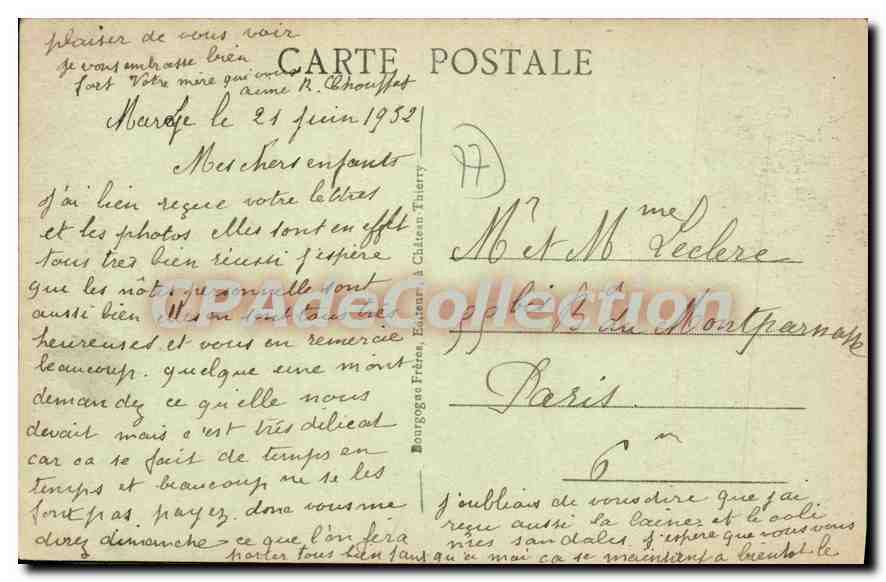 CARTE POSTALE
plaiser de vous voir
je vous embrasse bien
fort Votre mère qui vous
aime R. Chouffet
le 21 juin 1932
Mes chers enfants
J'ai bien reçue votre lettres
et les photos elles sont en effet
tous tres bien réussi j'espère
que les nôtes personnelle sont
aussi bien elles en sont tous trés
heureuses et vous en remercie
beaucoup. quelque une mont
demandez ce qu'elle nous
devait mais c'est trés délicat
car ca se fait de temps en
temps et beaucoup ne se les
font pas payez. donc vous me
direz dimanche ce que l'on fera
j'oubliais de vous dire que j'ai
reçu aussi la laine et le coli
mes sandales. J'espere que vous vous
porter tous bien quant qu'a moi ca se maintient a bientot le
Bourgogne Frères, Editeurs, à Château-Thierry
77
Mr et Mme Leclerc
99 bis Bd du Montparnasse
Paris
6m
CPAdeCollection.com